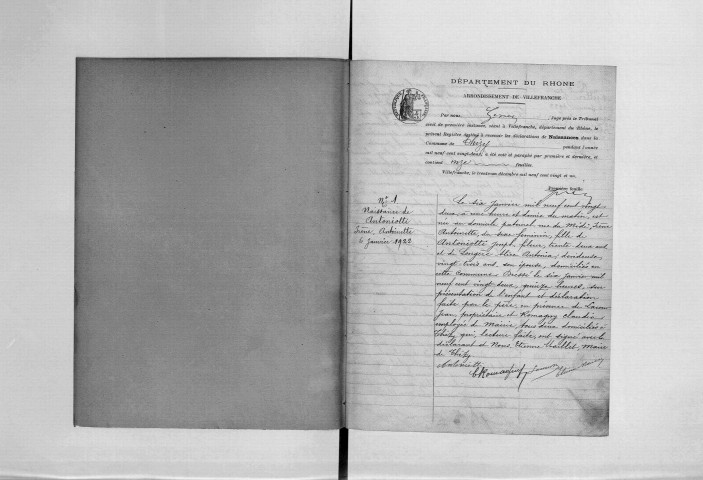 DÉPARTEMENT DU RHÔNE
ARRONDISSEMENT DE VILLEFRANCHE
Par nous, Juge près le Tribunal
civil de première instance, séant à Villefranche, département du Rhône, le
présent Registre destiné à recevoir les déclarations de Naissances dans la
Commune de Thizy pendant l'année
mil neuf cent vingt-deux, a été coté et paraphé par première et dernière, et
contient onze feuillets.
Villefranche, le trente-un décembre mil neuf cent vingt et un.
Première feuille
N° 1
Naissance de
Antoniotte
Irène Antoinette
6 Janvier 1922
Le six Janvier mil neuf cent vingt-
deux, à une heure et demie du matin, est
née au domicile paternel, rue du Midi, Irène
Antoinette, du sexe féminin, fille de
Antoniotte Joseph, fileur, trente deux ans
et de Antonia, dévideuse,
vingt trois ans, son épouse, domiciliés en
cette Commune. Dressé le six Janvier mil
neuf cent vingt deux, quinze heures, sur
présentation de l'enfant et déclaration
faite par le père, en présence de
Jean, propriétaire et Romagny Claudius
employé de Mairie, tous deux domiciliés à
Thizy qui, lecture faite, ont signé avec le
déclarant et Nous, Etienne Maire
de Thizy
Antoniotte
C. Romagny